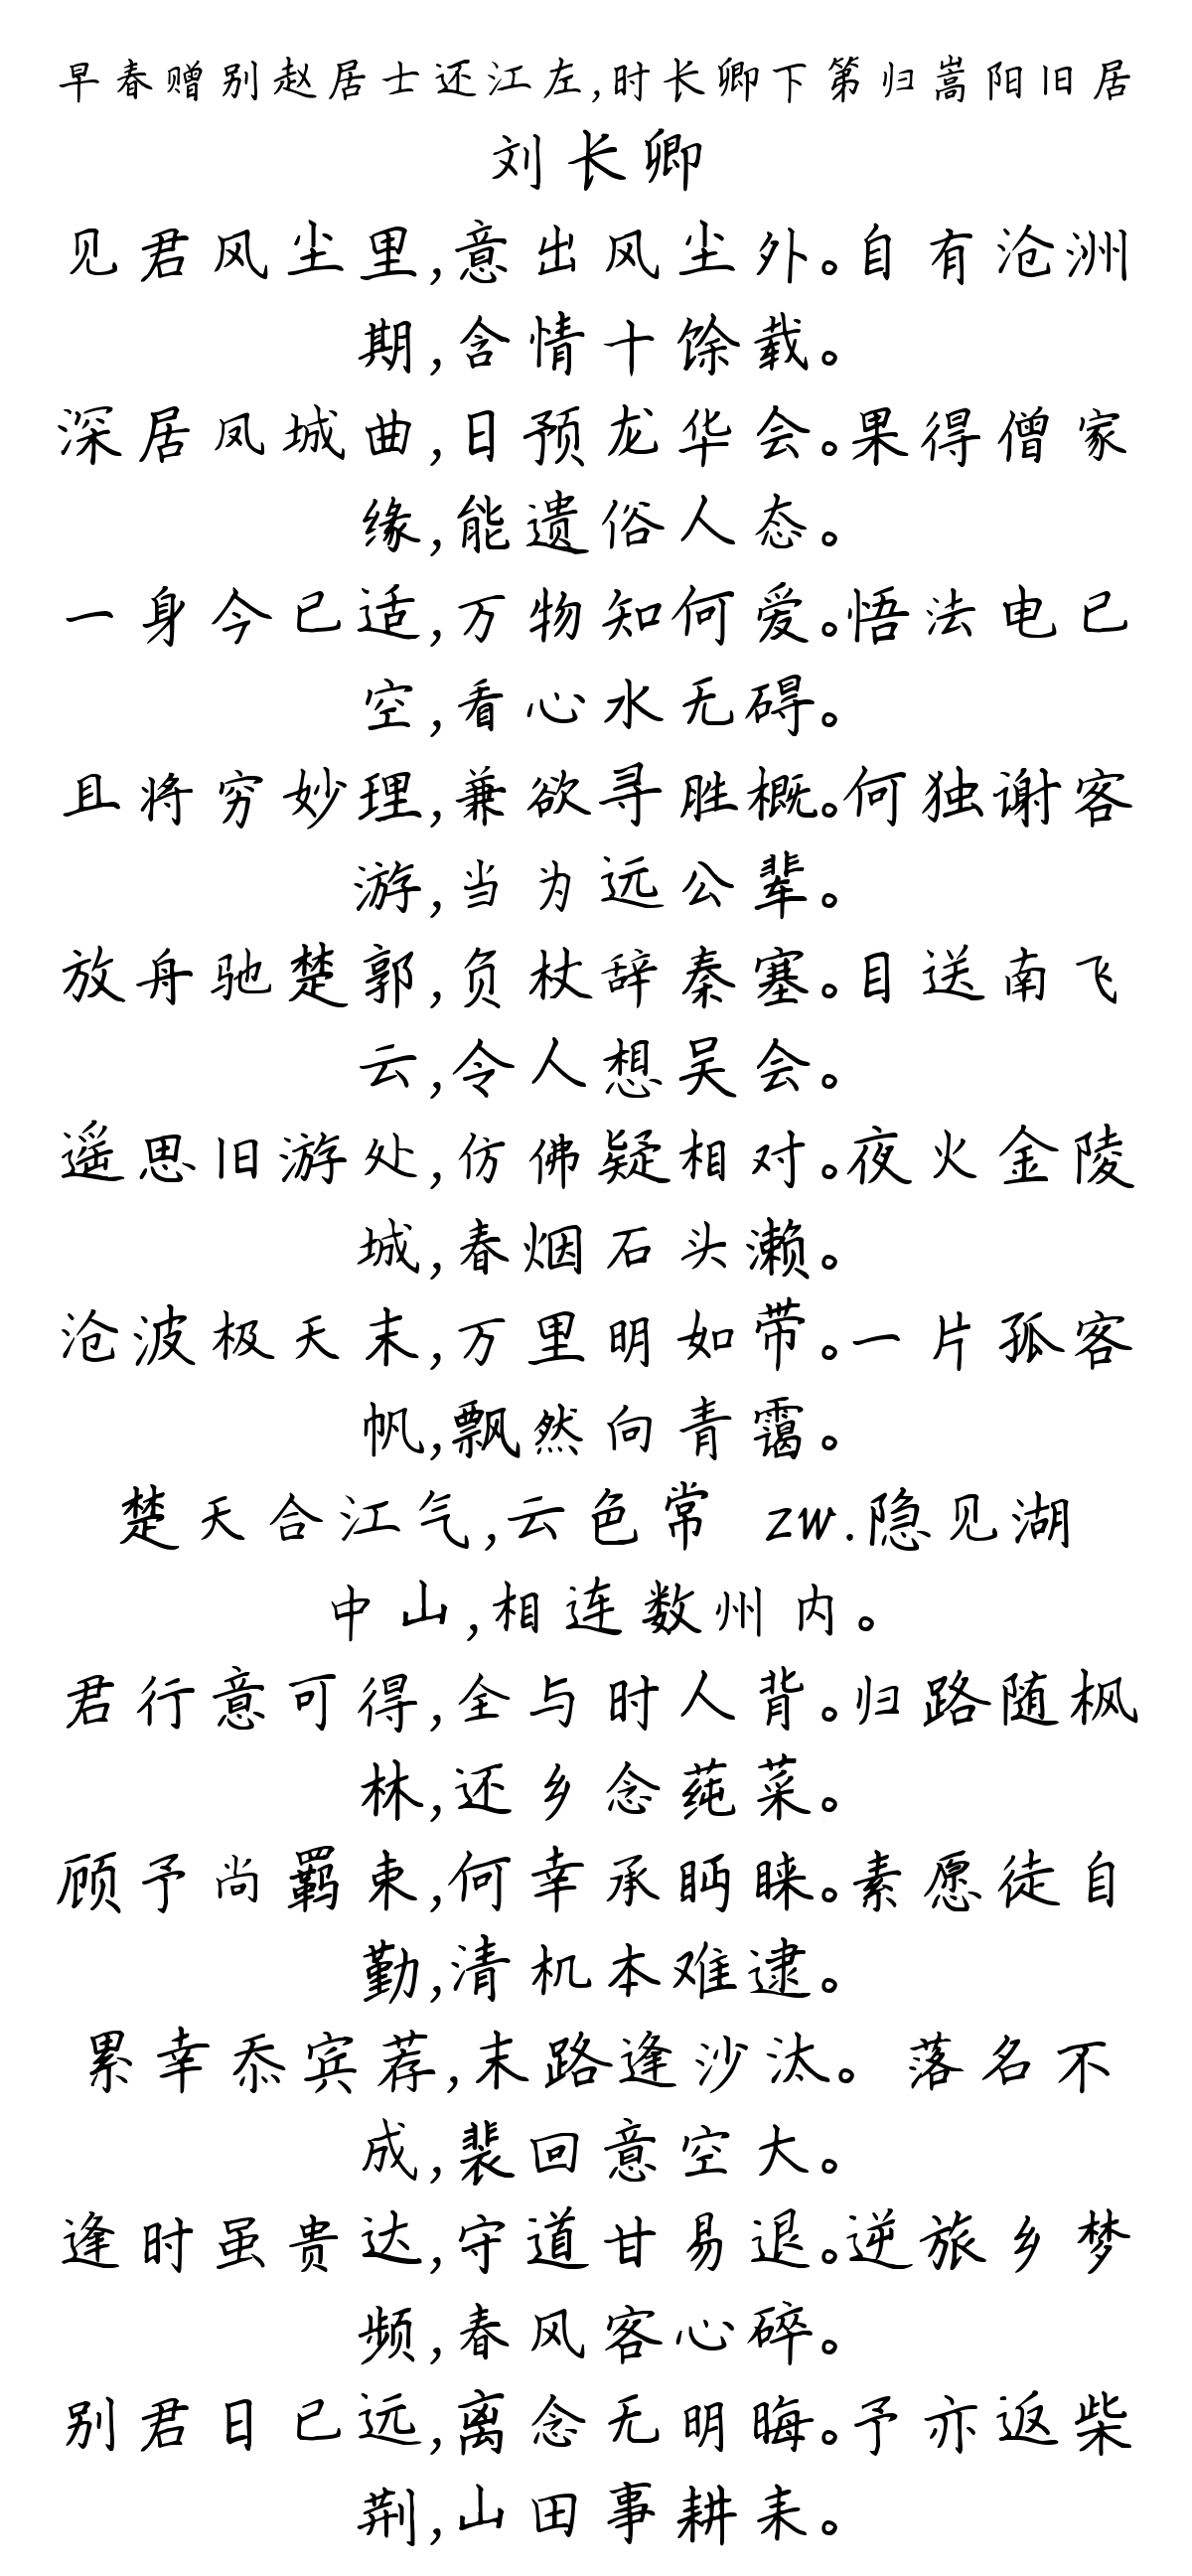 早春赠别赵居士还江左,时长卿下第归嵩阳旧居
刘长卿
见君风尘里,意出风尘外。自有沧洲
期,含情十馀载。
深居凤城曲,日预龙华会。果得僧家
缘,能遗俗人态。
一身今已适,万物知何爱。悟法电已
空,看心水无碍。
且将穷妙理,兼欲寻胜概。何独谢客
游,当为远公辈。
放舟驰楚郭,负杖辞秦塞。目送南飞
云,令人想吴会。
遥思旧游处,仿佛疑相对。夜火金陵
城,春烟石头濑。
沧波极天末,万里明如带。一片孤客
帆,飘然向青霭。
楚天合江气,云色常 zw.隐见湖
中山,相连数州内。
君行意可得,全与时人背。归路随枫
林,还乡念莼菜。
顾予尚羁束,何幸承眄睐。素愿徒自
勤,清机本难逮。
累幸忝宾荐,末路逢沙汰。落名不
成,裴回意空大。
逢时虽贵达,守道甘易退。逆旅乡梦
频,春风客心碎。
别君日已远,离念无明晦。予亦返柴
荆,山田事耕耒。